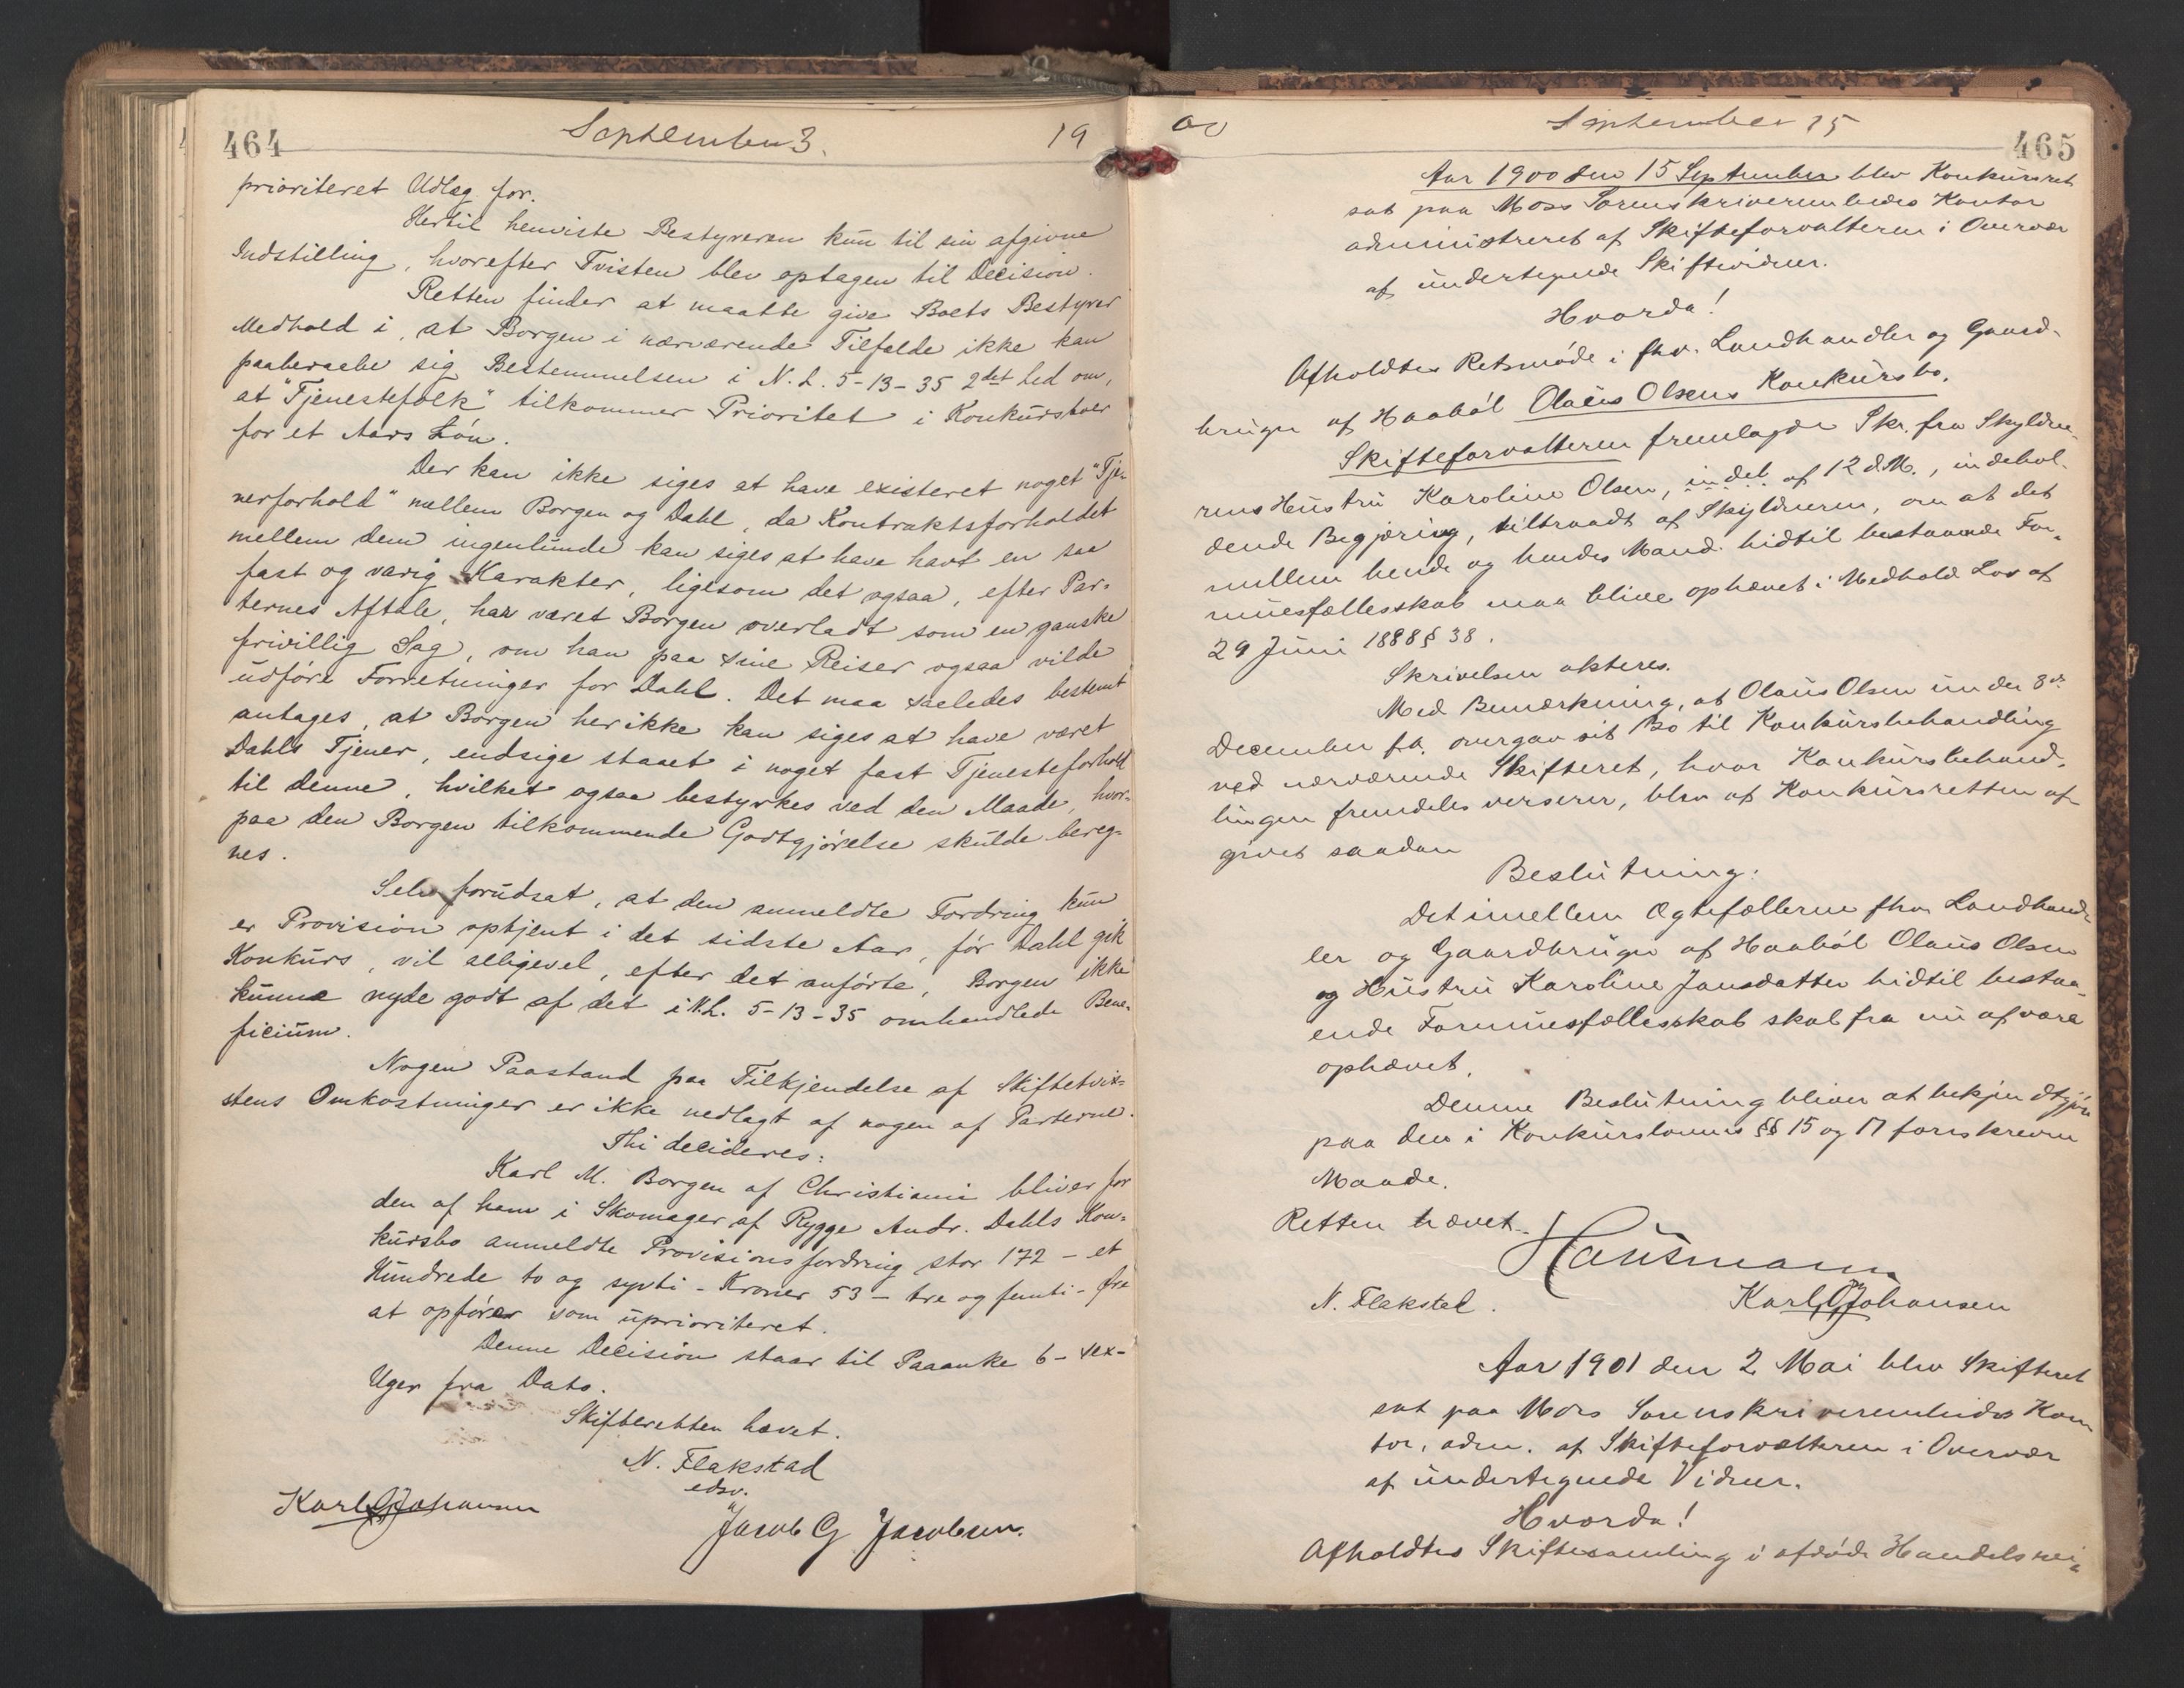 464
September 3.
19
prioriteret Udlæg for.
Hertil henviste Bestyreren kun til sin afgivne
Indstilling, hvorefter Tvisten blev optagen til Decision.
Retten finder at maatte give Boets Bestyrer
Medhold i, at Borgen i nærværende Tilfælde ikke kan
paaberaabe sig Bestemmelsen i N. L. 5-13-35 2det Led om,
at "Tjenestefolk" tilkommer Prioritet i Konkursboer
for et Aars Løn.
Der kan ikke siges at have existeret noget "Tje-
nerforhold" mellem Borgen og Dahl, da Kontraktsforholdet
mellem dem ingenlunde kan siges at have havt en saa
fast og varig Karakter, ligesom det ogsaa, efter Par-
ternes Aftale, har været Borgen overladt som en ganske
frivillig Sag, om han paa sine Reiser ogsaa vilde
udføre Forretninger for Dahl. Det maa saaledes bestemt
antages, at Borgen her ikke kan siges at have været
Dahls Tjener, endsige staaet i noget fast Tjenesteforhold
til denne, hvilket ogsaa bestyrkes ved den Maade, hvor-
paa den Borgen tilkommende Godtgjørelse skulde bereg-
nes.
Selv forudsat, at den anmeldte Fordring kun
er Provision optjent i det sidste Aar, før Dahl gik
Konkurs, vil alligevel, efter det anførte, Borgen ikke
kunne nyde godt af det i N.L. 5-13-35 omhandlede Bene-
ficium.
Nogen Paastand paa Tilkjendelse af Skiftetvi-
stens Omkostninger er ikke nedlagt af nogen af Parterne.
Thi decideres:
Karl M. Borgen af Christiania bliver for
den af ham i Skomager af Rygge Andr. Dahls Kon-
kursbo anmeldte Provisionsfordring stor 172 - et
Hundrede to og sytti - Kroner 53 - tre og femti - Øre
at opføres som uprioriteret.
Denne Decision staar til Paaanke 6 - sex -
Uger fra Dato.
Skifteretten hævet.
N. Flakstad
edsv.
Karl G Johansen
Jacob G Jacobsen.
00
September 15
465
Aar 1900 den 15 September blev Konkursret
sat paa Moss Sorenskriverembedes Kontor
administreret af Skifteforvalteren i Overvær
af undertegnede Skiftevidner.
Hvorda!
Afholdtes Retsmøde i fhv. Landhandler og Gaard-
bruger af Haabøl Olaus Olsens Konkursbo.
Skifteforvalteren fremlagde Skr. fra Skyldne-
rens Hustru Karoline Olsen, indek. af 12 d.M., indehol-
dende Begjæring, tiltraadt af Skyldneren, om at det
mellem hende og hendes Mand hidtil bestaaende For-
muesfællesskab maa blive ophævet i Medhold Lov af
29 Juni 1888 § 38.
Skrivelsen akteres.
Med Bemærkning, at Olaus Olsen under 3die
December f.A. overgav sit Bo til Konkursbehandling
ved nærværende Skifteret, hvor Konkursbehand-
lingen fremdeles verserer, blev af Konkursretten af-
givet saadan
Beslutning:
Det imellem Ægtefællerne fhv. Landhand-
ler og Gaardbruger af Haabøl Olaus Olsen
og Hustru Karoline Jansdatter hidtil bestaa-
ende Formuesfællesskab skal fra nu af være
ophævet.
Denne Beslutning bliver at bekjendtgjøre
paa den i Konkurslovens §§ 15 og 17 foreskrevne
Maade.
Retten hævet.
Hansmann
N. Flakstad.
Karl G Johansen
Aar 1901 den 2 Mai blev Skifteret
sat paa Moss Sorenskriverembedes Kon-
tor, adm. af Skifteforvalteren i Overvær
af undertegnede Vidner.
Hvorda!
Afholdtes Skiftesamling i afdøde Handelsrei-